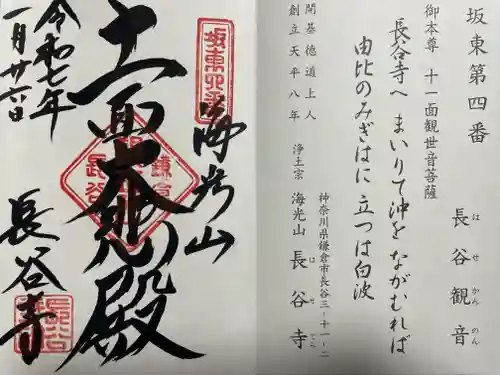 坂東第四番
御本尊 十一面観世音菩薩
長谷観音
は せ かん のん
長谷寺へ まいりて沖を ながむれば
由比のみぎはに 立つは白波
開基徳道上人
創立天平八年
浄土宗 海光山 長谷寺
は せ でら
神奈川県鎌倉市長谷三ー十一ー二
坂東四番
海光山
十一面大悲殿
鎌倉
長谷
令和七年
一月廿六日
長谷寺